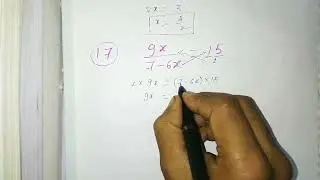 2x = 3
x = 3/2
17) 9x/(7-6x) = 15/1
1 × 9x = (7-6x) × 15
9x =